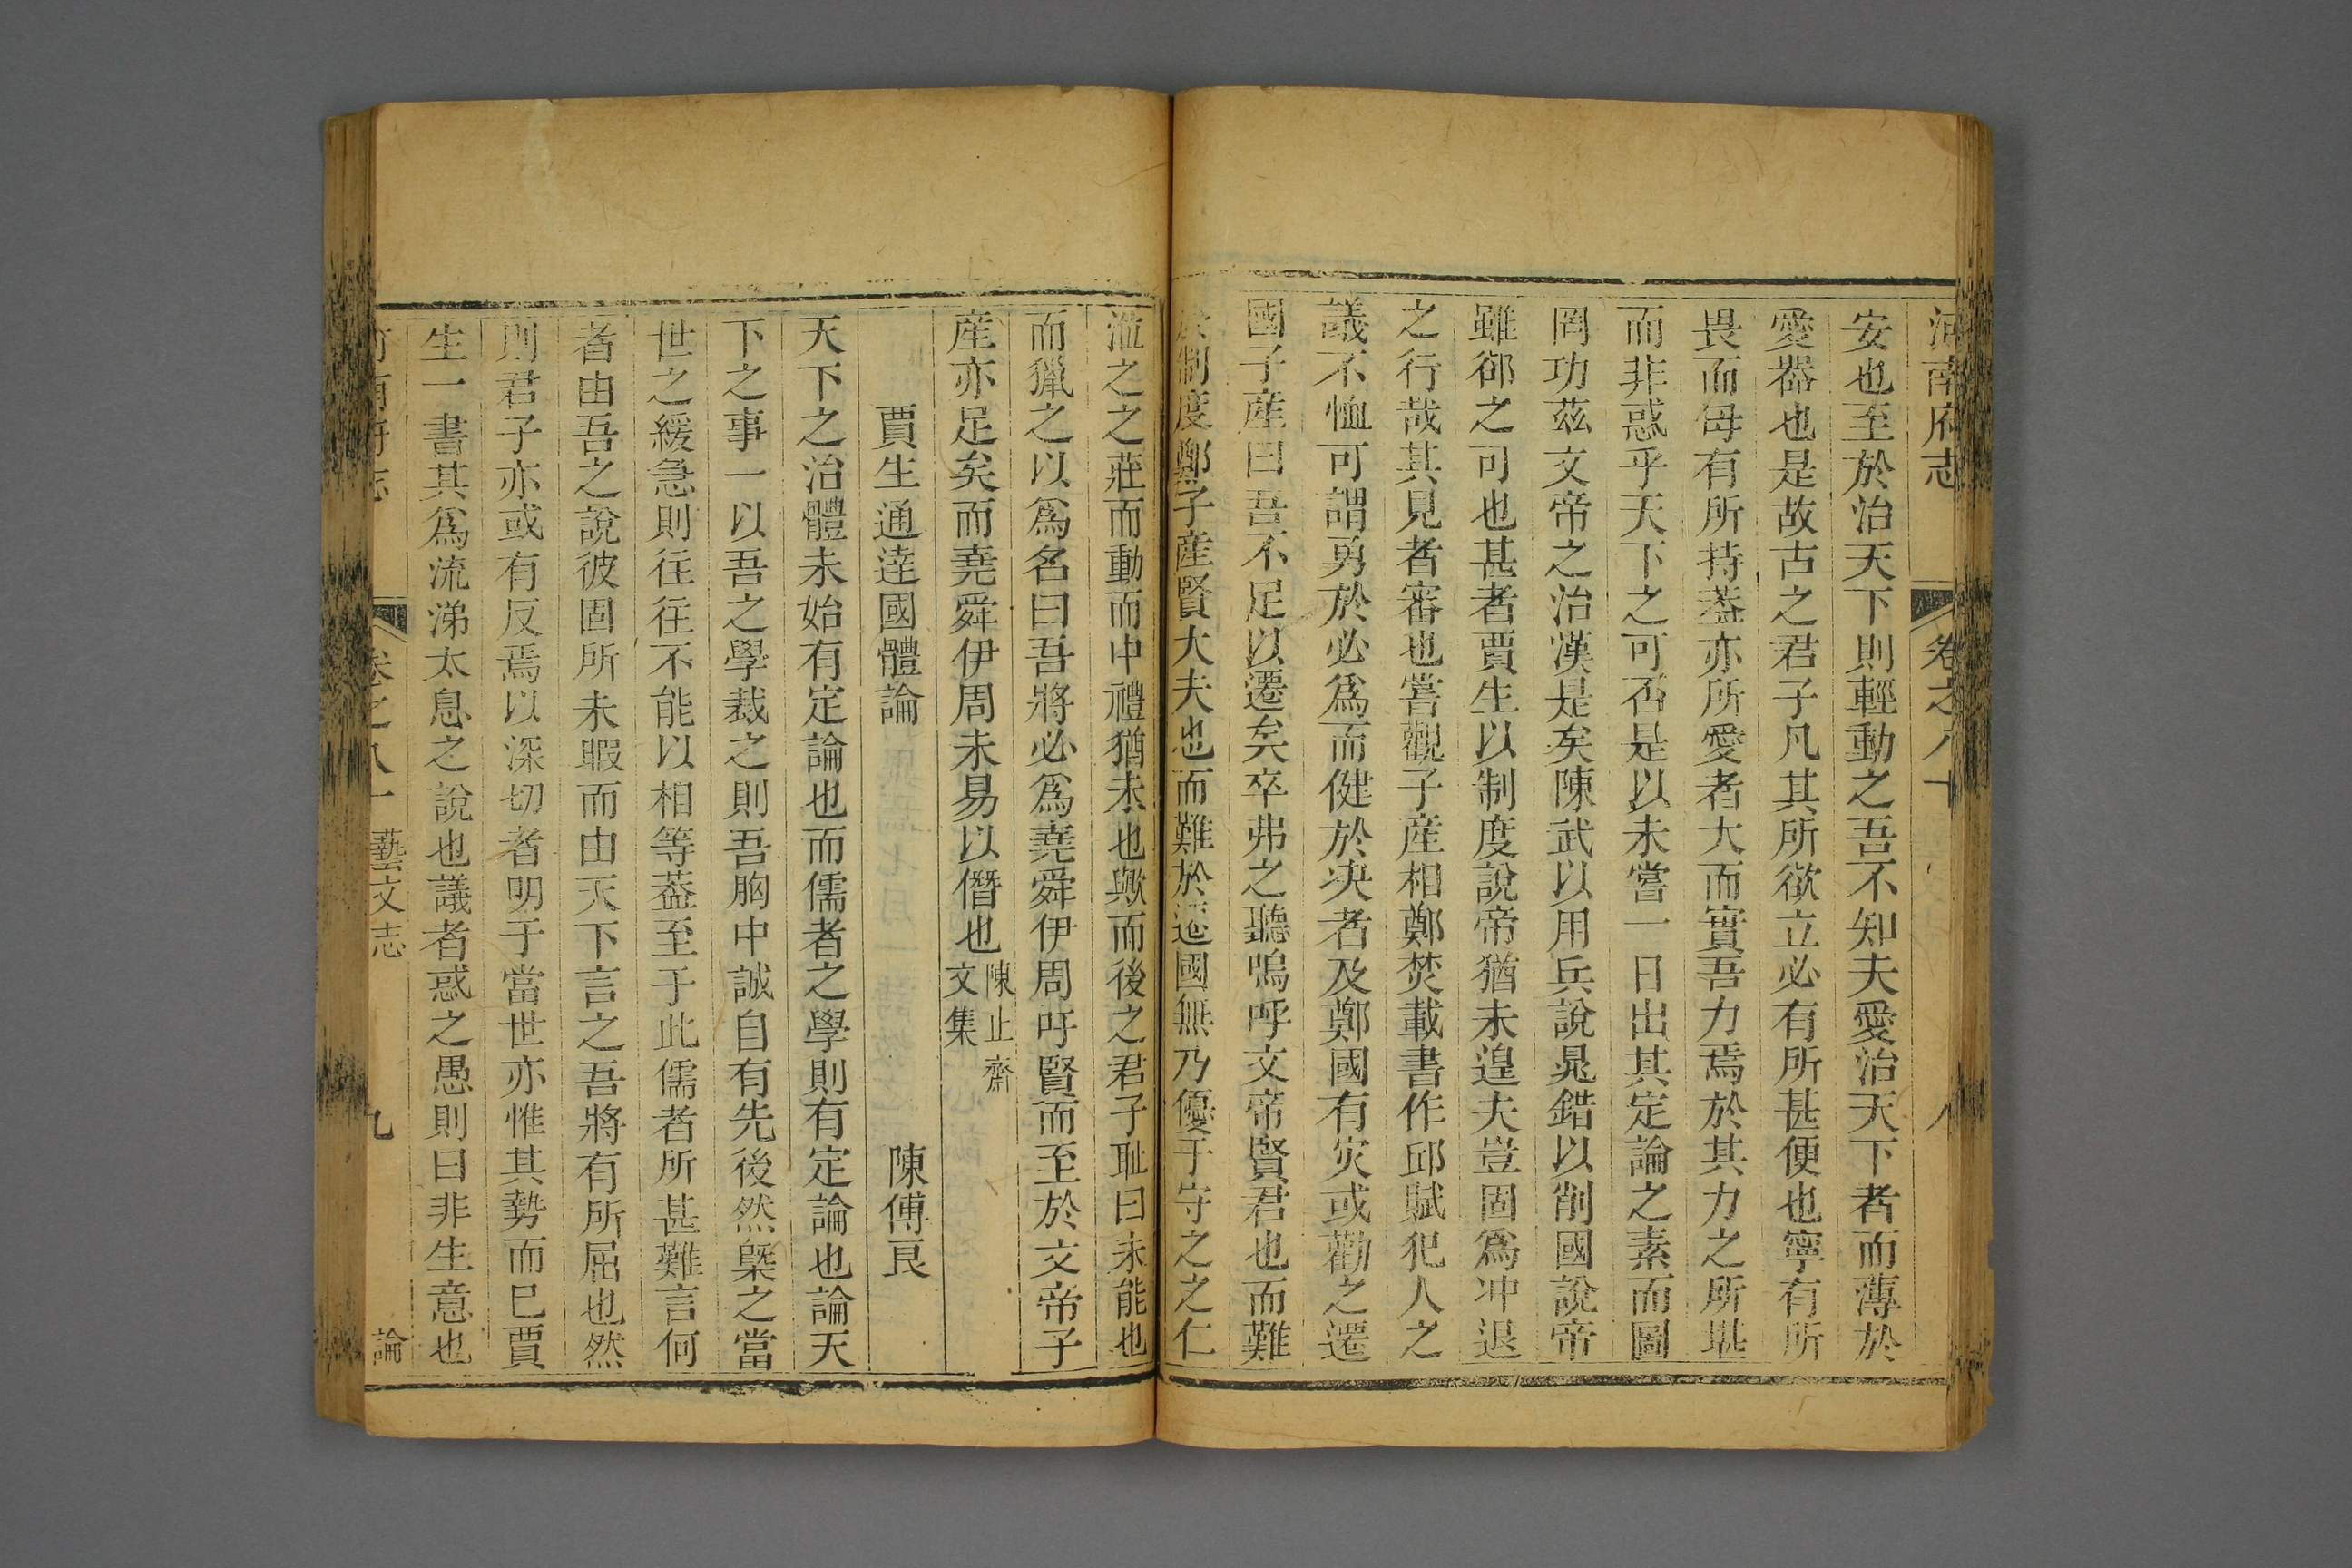 河南府志 卷之八十 八
安也至於治天下則輕動之吾不知夫愛治天下者而薄於
愛器也是故古之君子凡其所欲立必有所甚便也寧有所
畏而毋有所持葢亦所愛者大而實吾力焉於其力之所堪
而非惑乎天下之可否是以未嘗一日出其定論之素而圖
罔功茲文帝之治漢是矣陳武以用兵說晁錯以削國說帝
雖郤之可也甚者賈生以制度說帝猶未遑夫豈固爲冲退
之行哉其見者審也嘗觀子産相鄭焚載書作邱賦犯人之
議不恤可謂勇於必爲而健於决者及鄭國有灾或勸之遷
國子産曰吾不足以遷矣卒弗之聽嗚呼文帝賢君也而難
制度鄭子産賢大夫也而難於遷國無乃優于守之之仁
涖之之莊而動而中禮猶未也歟而後之君子耻曰未能也
而獵之以爲名曰吾將必爲堯舜伊周吁賢而至於文帝子
産亦足矣而堯舜伊周未易以僭也 陳止齋
文集
賈生通達國體論 陳傅良
天下之治體未始有定論也而儒者之學則有定論也論天
下之事一以吾之學裁之則吾胸中誠自有先後然槩之當
世之緩急則往往不能以相等葢至于此儒者所甚難言何
者由吾之說彼固所未暇而由天下言之吾將有所屈也然
則君子亦或有反焉以深切者明于當世亦惟其勢而已賈
生一書其爲流涕太息之說也議者惑之愚則曰非生意也
河南府志 卷之八十 藝文志 九 論